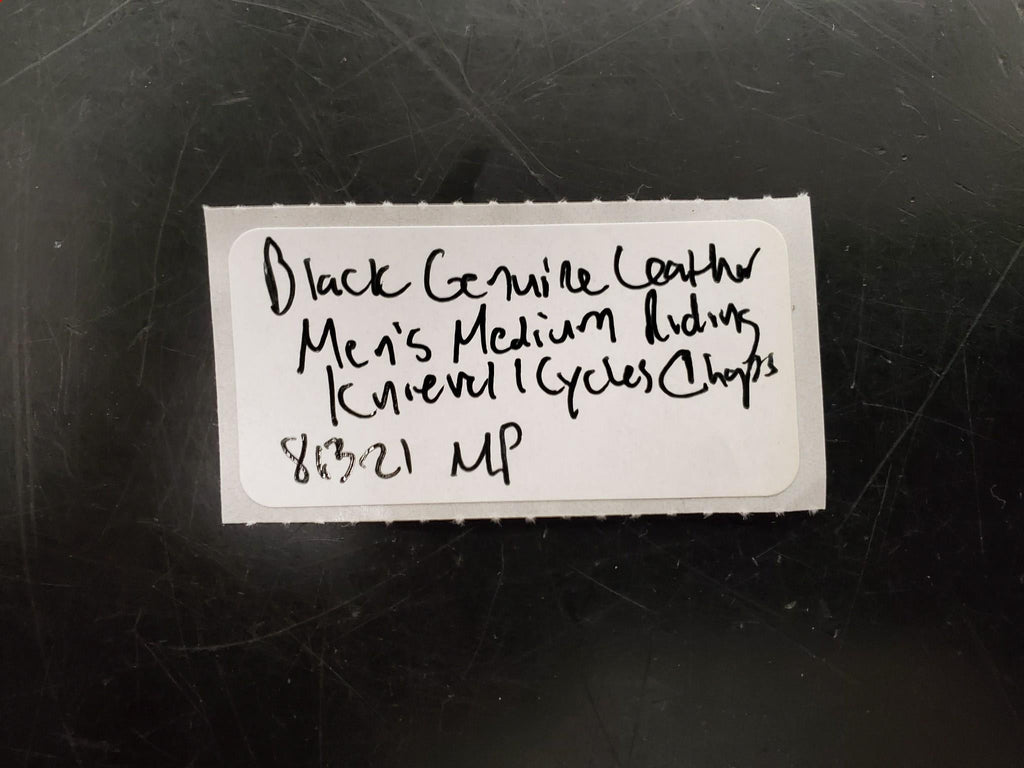 Black Genuine Leather
Men's Medium Riding
Knievel Cycles Chaps
81321 MP